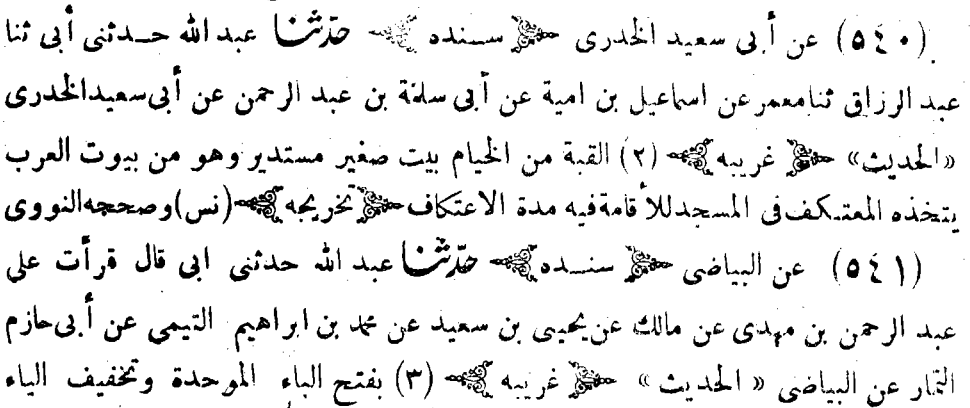 (٥٤٠) عن أبى سعيد الخدرى ﴿ سنده ﴾ حدّثنا عبد الله حدثنى أبى ثنا
عبد الرزاق ثنا معمر عن اسماعيل بن امية عن أبى سلمة بن عبد الرحمن عن أبى سعيد الخدرى
« الحديث » ﴿ غريبه ﴾ (٢) القبة من الخيام بيت صغير مستدير وهو من بيوت العرب
يتخذه المعتكف فى المسجد للأقامة فيه مدة الاعتكاف ﴿ تخريجه ﴾ (نس) وصححه النووى
(٥٤١) عن البياضى ﴿ سنده ﴾ حدّثنا عبد الله حدثنى ابى قال قرأت على
عبد الرحمن بن مهدى عن مالك عن يحيى بن سعيد عن محمد بن ابراهيم التيمى عن أبى حازم
التمار عن البياضى « الحديث » ﴿ غريبه ﴾ (٣) بفتح الباء الموحدة وتخفيف الياء